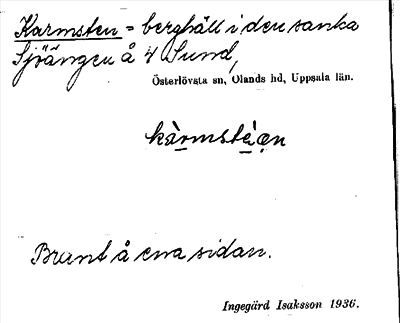 Karmsten = berghäll i den sanka
Sjöängen å 4 Sund,
Österlövsta sn, Olands hd, Uppsala län.
kàrmstéan
Brant å ena sidan.
Ingegärd Isaksson 1936.